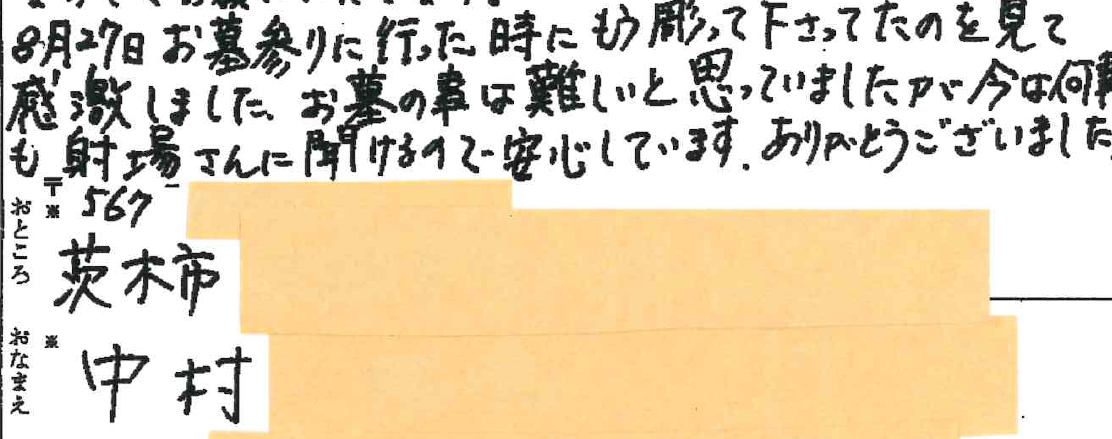 8月27日 お墓参りに行った時にもう彫って下さってたのを見て
感激しました、お墓の事は難しいと思っていましたが今は何事
も射場さんに聞けるので安心しています。ありがとうございました
〒※ 567-
おところ
茨木市
おなまえ※
中村